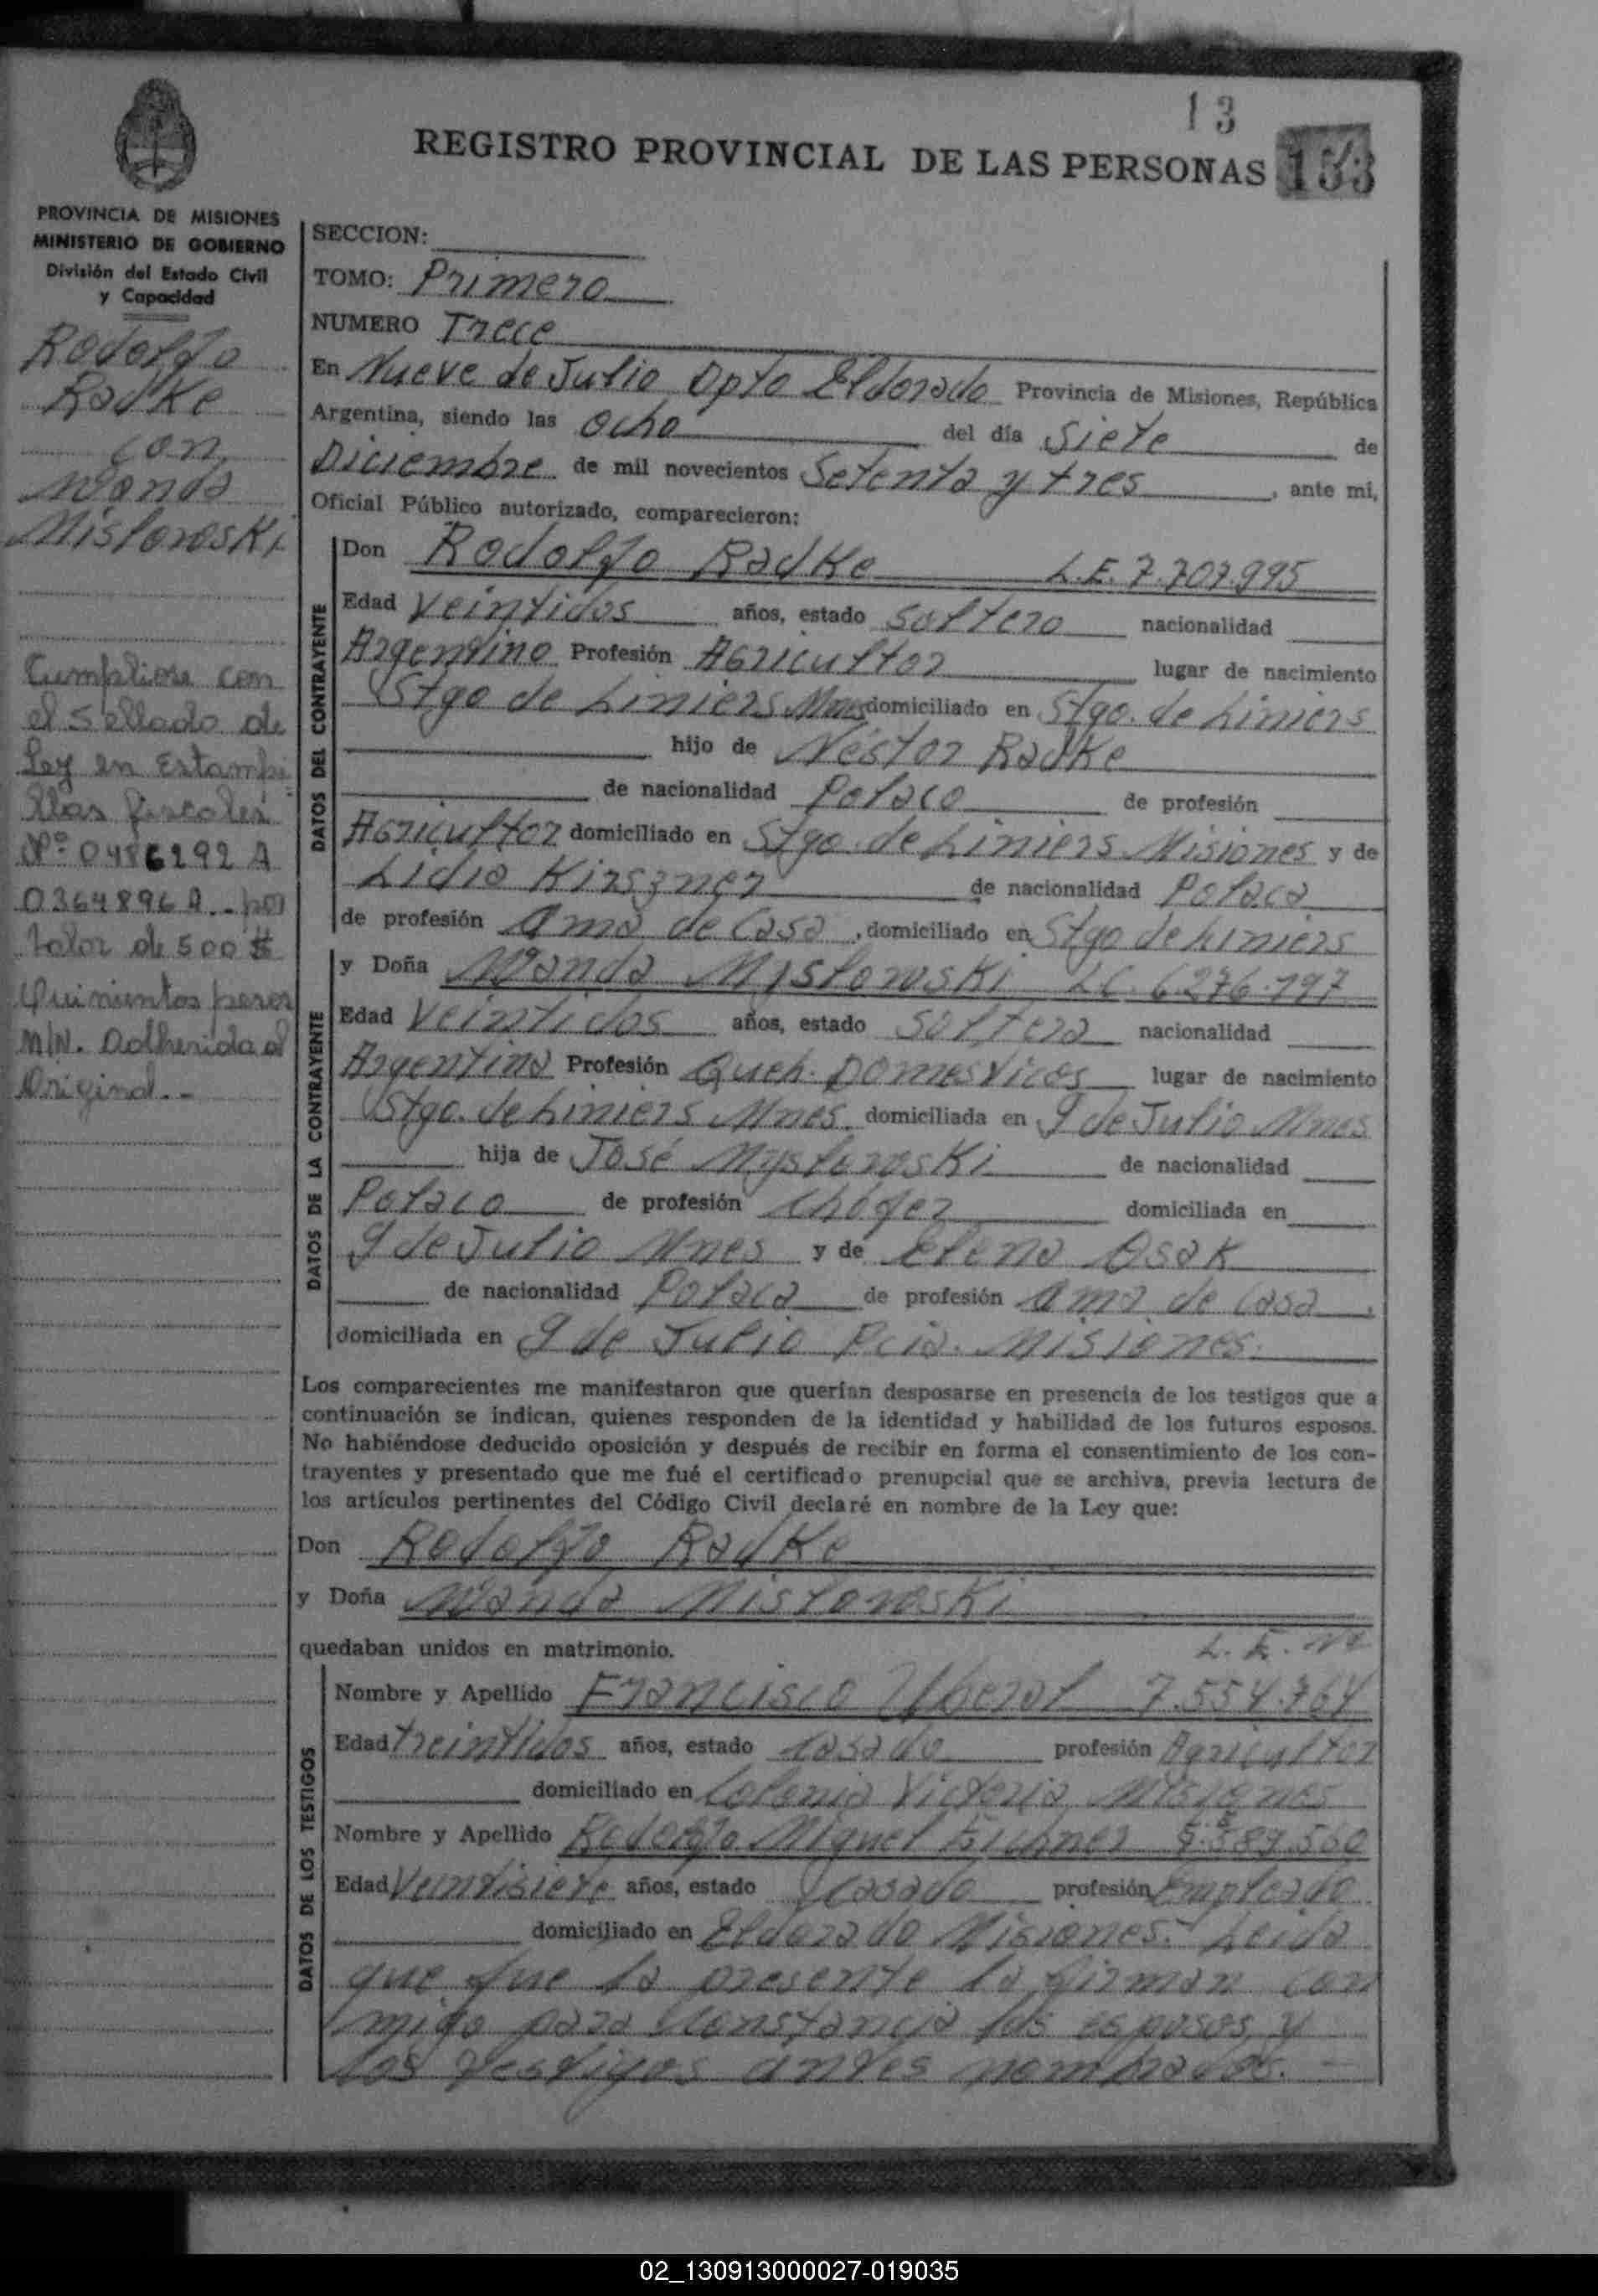 13
REGISTRO PROVINCIAL DE LAS PERSONAS 153
PROVINCIA DE MISIONES
MINISTERIO DE GOBIERNO
División del Estado Civil
y Capacidad
Rodolfo
Radke
con
Wanda
Misloroski
Cumpliose con
el Sellado de
Ley en Estampi
llas fiscales
Nº 0486292 A
0364896 A - por
Valor de 500 $
Quinientos pesos
M/N. Adherida al
Original.-
SECCION:
TOMO: Primero
NUMERO Trece
En Nueve de Julio Dpto Eldorado Provincia de Misiones, República
Argentina, siendo las Ocho del día Siete de
Diciembre de mil novecientos Setenta y tres, ante mi,
Oficial Público autorizado, comparecieron:
DATOS DEL CONTRAYENTE
Don Rodolfo Radke L.E. 7.707.995
Edad Veintidos años, estado Soltero nacionalidad
Argentino Profesión Agricultor lugar de nacimiento
Stgo de Liniers Mnes domiciliado en Stgo. de Liniers
hijo de Néstor Radke
de nacionalidad Polaco de profesión
Agricultor domiciliado en Stgo. de Liniers Misiones y de
Lidia Kirszner de nacionalidad Polaca
de profesión Ama de Casa, domiciliado en Stgo de Liniers
DATOS DE LA CONTRAYENTE
y Doña Wanda Mysloroski LC. 6.276.197
Edad Veintidos años, estado Soltera nacionalidad
Argentina Profesión Queh. Domesticos lugar de nacimiento
Stgo. de Liniers Mnes. domiciliada en 9 de Julio Mnes
hija de José Mysloroski de nacionalidad
Polaco de profesión Chófer domiciliada en
9 de Julio Mnes y de Elena Osak
de nacionalidad Polaca de profesión Ama de Casa,
domiciliada en 9 de Julio Pcia. Misiones.
Los comparecientes me manifestaron que querían desposarse en presencia de los testigos que a
continuación se indican, quienes responden de la identidad y habilidad de los futuros esposos.
No habiéndose deducido oposición y después de recibir en forma el consentimiento de los con-
trayentes y presentado que me fué el certificado prenupcial que se archiva, previa lectura de
los artículos pertinentes del Código Civil declaré en nombre de la Ley que:
Don Rodolfo Radke
y Doña Wanda Misloroski
quedaban unidos en matrimonio. L.E. Nº
DATOS DE LOS TESTIGOS
Nombre y Apellido Francisco 7.554.764
Edad treintidos años, estado casado profesión Agricultor
domiciliado en Colonia Victoria Misiones
Nombre y Apellido Rodolfo Miguel Eichner
Edad Veintisiete años, estado casado profesión Empleado
domiciliado en Eldorado Misiones. Leida
que fue la presente la firman con
migo para Constancia los esposos y
los testigos antes nombrados.
02_130913000027-019035